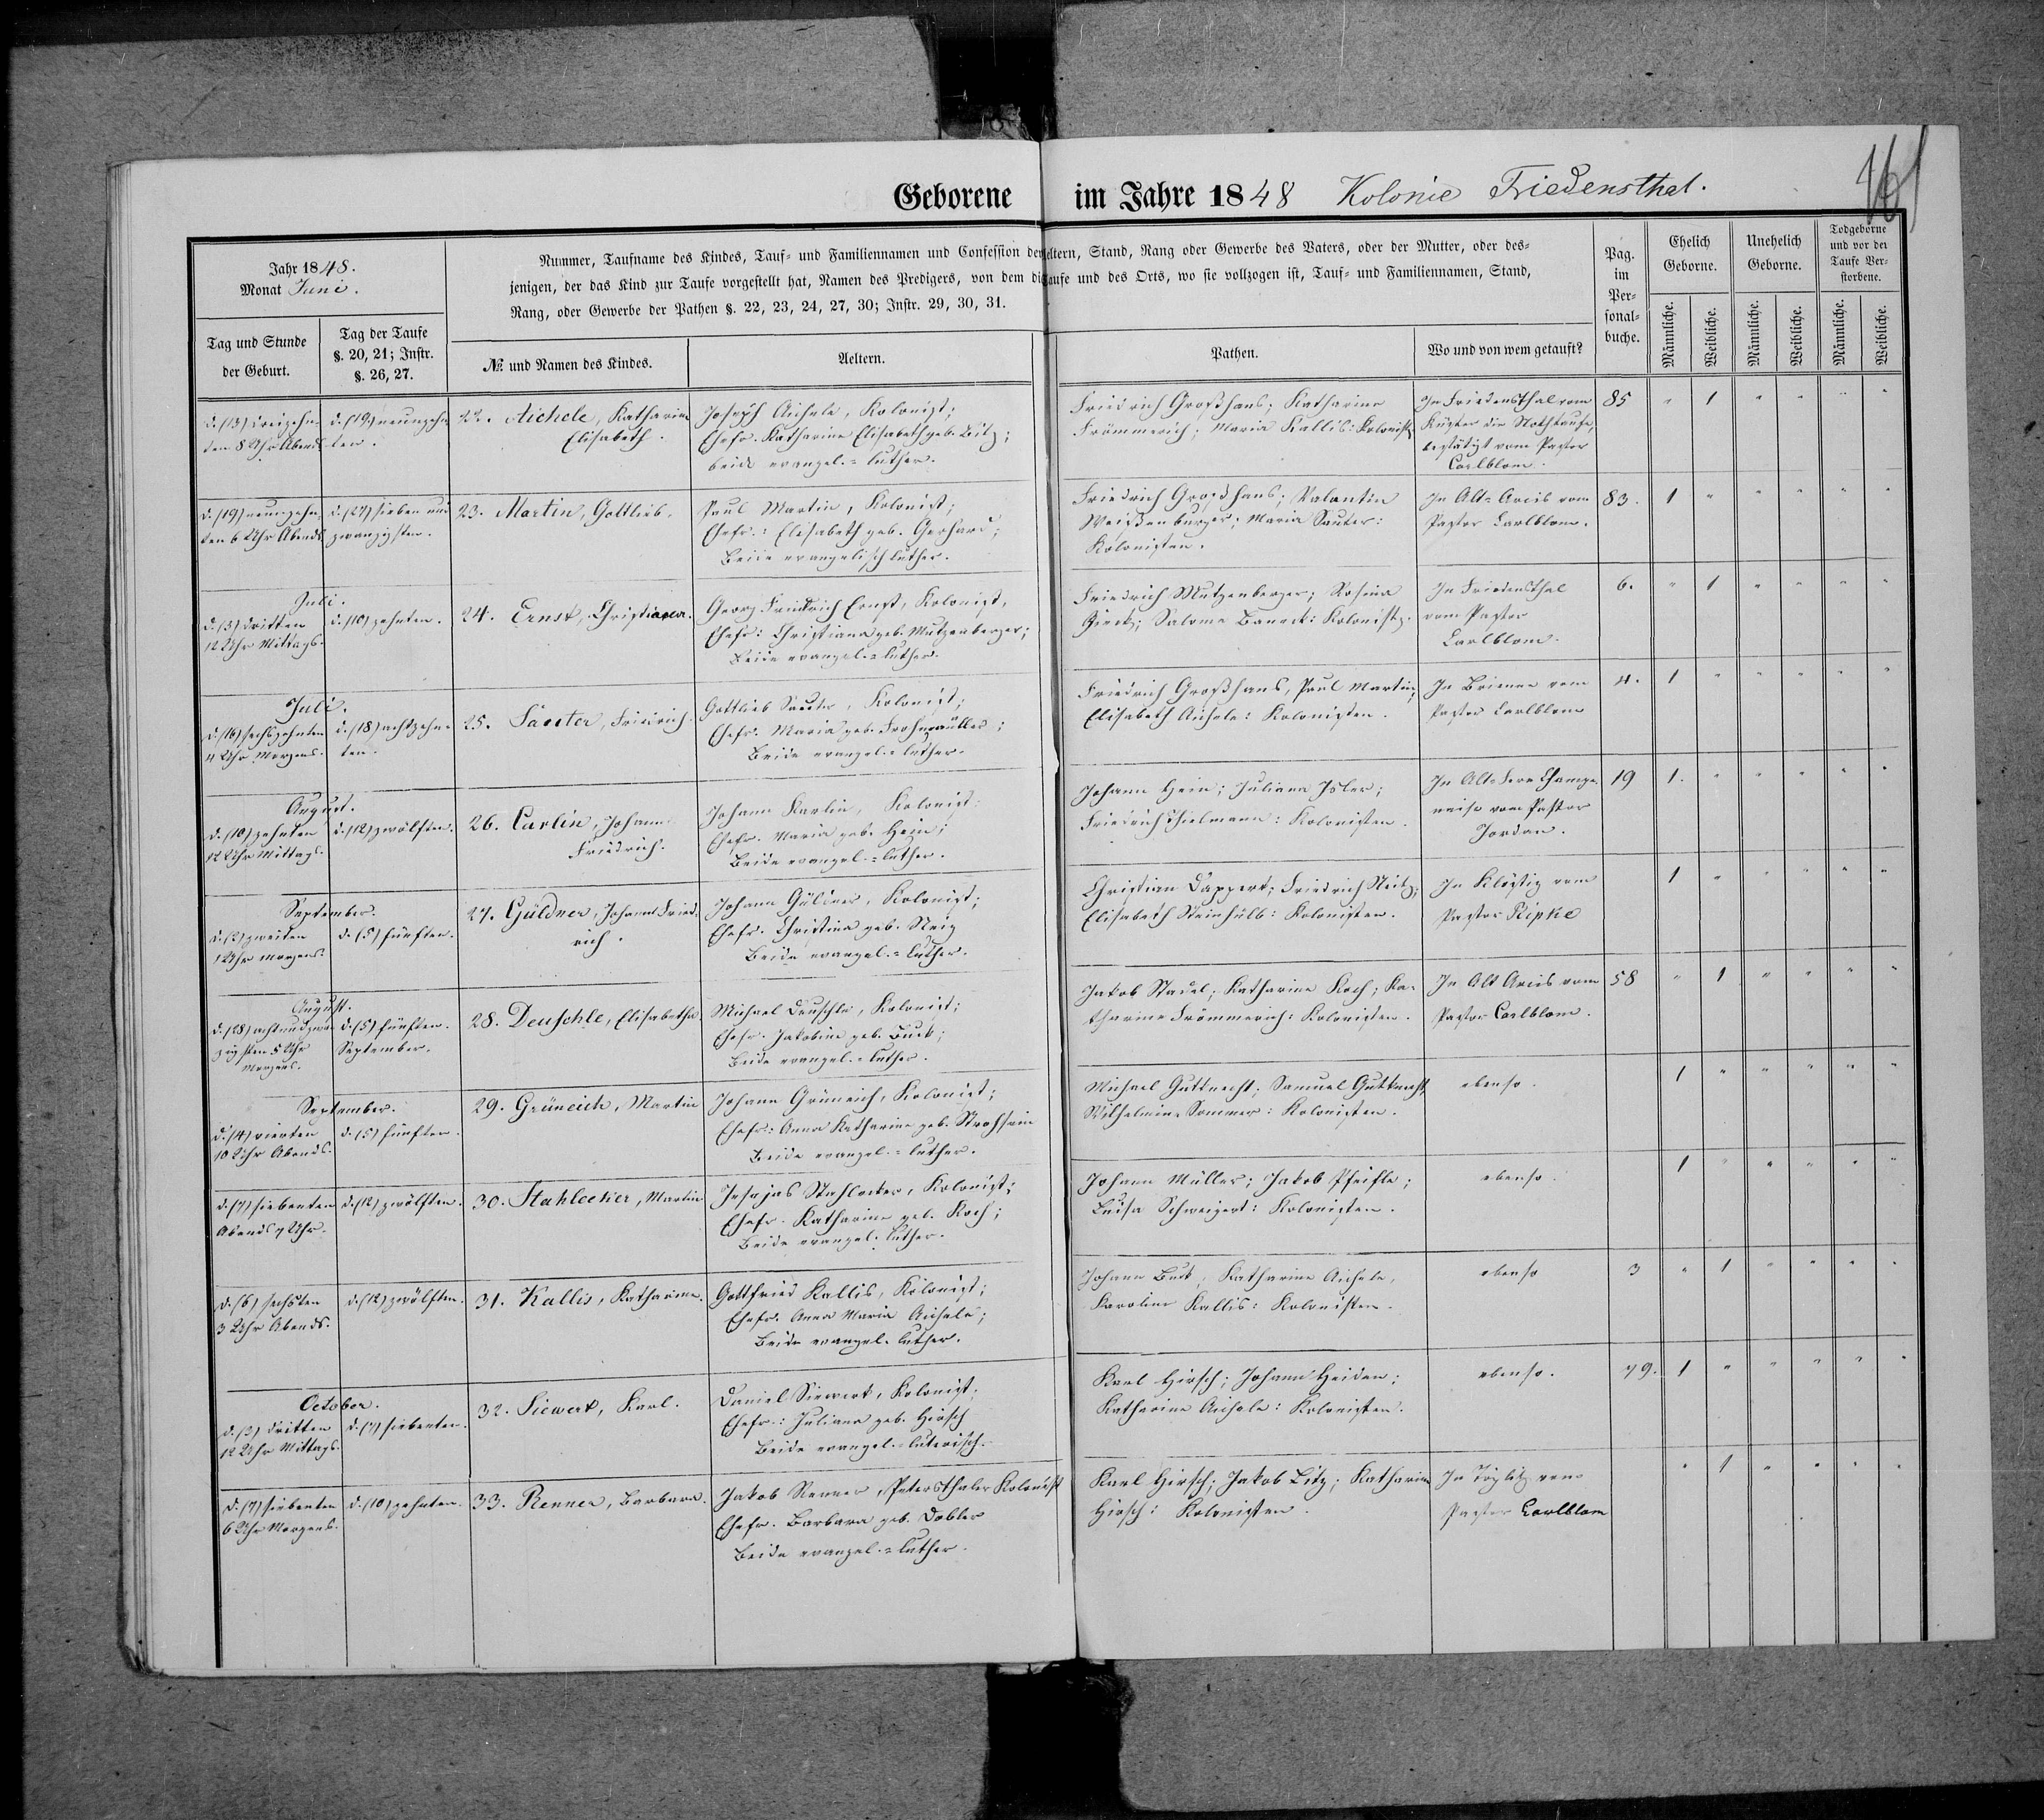 Geborene im Jahre 1848 Kolonie Friedensthal.
161
Jahr 1848.
Monat Juni.
Nummer, Taufname des Kindes, Tauf- und Familiennamen und Confession der Aeltern, Stand, Rang oder Gewerbe des Vaters, oder der Mutter, oder des-
jenigen, der das Kind zur Taufe vorgestellt hat, Namen des Predigers, von dem die Taufe und des Orts, wo sie vollzogen ist, Tauf- und Familiennamen, Stand,
Rang, oder Gewerbe der Pathen §. 22, 23, 24, 27, 30; Instr. 29, 30, 31.
Pag.
im
Per-
sonal-
buche.
Ehelich
Geborne.
Unehelich
Geborne.
Todgeborne
und vor der
Taufe Ver-
storbene.
Tag und Stunde
der Geburt.
Tag der Taufe
§. 20, 21; Instr.
§. 26, 27.
№ und Namen des Kindes.
Aeltern.
Pathen.
Wo und von wem getauft?
Männliche.
Weibliche.
Männliche.
Weibliche.
Männliche.
Weibliche.
d. (13) dreizehn-
ten 8 Uhr Abend
d. (19) neunzehn
ten.
22. Aichele, Katharina
Elisabeth.
Joseph Aichele, Kolonist;
Ehefr. Katharina Elisabeth geb. Litz;
beide evangel.-luther.
Friedrich Großhans; Katharina
Frömmerich; Maria Kallis: Kolonist
In Friedensthal vom
Küster die Nothtaufe,
bestätigt vom Pastor
Carlblom.
85 " 1 " " " "
d. (19) neunzehn-
ten 6 Uhr Abends
d. (27) sieben und
zwanzigsten.
23. Martin, Gottlieb.
Paul Martin, Kolonist;
Ehefr.: Elisabeth geb. Gerhard;
Beide evangelisch luther.
Friedrich Großhans; Valentin
Weißenburger; Maria Sauter:
Kolonisten.
In Alt-Arcis vom
Pastor Carlblom.
83. 1 " " " " "
Juli.
d. (3) dritten
12 Uhr Mittags.
d. (10) zehnten.
24. Ernst, Christiana.
Georg Friedrich Ernst, Kolonist,
Ehefr: Christiana geb. Mutzenberger;
Beide evangel.-luther.
Friedrich Mutzenberger; Rosina
Gieck; Salome Baneck: Kolonist.
In Friedensthal
vom Pastor
Carlblom.
6. " 1 " " " "
Juli.
d. (16) sechszehnten
4 Uhr Morgens.
d. (18) achtzehn-
ten.
25. Sauter, Friedrich.
Gottlieb Sauter, Kolonist;
Ehefr. Maria geb. Frohmüller;
Beide evangel.-luther.
Friedrich Großhans, Paul Martin;
Elisabeth Aichele: Kolonisten.
In Brienne vom
Pastor Carlblom
4. 1 " " " " "
August.
d. (10) zehnten
12 Uhr Mittags.
d. (12) zwölften.
26. Carlin, Johann
Friedrich.
Johann Karlin, Kolonist.
Ehefr. Maria geb. Hein;
Beide evangel.-luther.
Johann Hein; Juliana Isler;
Friedrich Thielmann: Kolonisten.
In Alt-Fere Champe-
noise vom Pastor
Jordan.
19 1. " " " " "
September.
d. (2) zweiten
1 Uhr Morgens.
d. (5) fünften.
27. Güldner, Johann Fried-
rich.
Johann Güldner, Kolonist;
Ehefr. Christina geb. Steiz
Beide evangel.-luther.
Christian Dappert; Friedrich Steitz;
Elisabeth Steinhülb: Kolonisten.
In Klöstitz vom
Pastor Pipke
1 " " " " "
August.
d. (28) acht und zwan
zigsten 5 Uhr
Morgens.
d. (5) fünften.
September.
28. Deuschle, Elisabetha
Michael Deuschle, Kolonist;
Ehefr. Jakobine geb. Buck;
Beide evangel.-luther.
Jakob Stadel; Katharina Koch; Ka-
tharina Frömmerich: Kolonisten.
In Alt Arcis vom
Pastor Carlblom.
58 " 1 " " " "
September.
d. (4) vierten
10 Uhr Abends.
d. (5) fünften.
29. Grüneich, Martin
Johann Grüneich, Kolonist;
Ehefr.: Anna Katharina geb. Strohhain
Beide evangel.-luther.
Michael Gutknecht; Samuel Gutknecht,
Wilhelmine Sommer: Kolonisten.
ebenso.
1 " " " " "
d. (7) siebenten
Abends 7 Uhr.
d. (12) zwölften.
30. Stahlecker, Martin
Jesajas Stahlecker, Kolonist;
Ehefr. Katharina geb. Koch;
Beide evangel. luther.
Johann Müller; Jakob Pfeifle;
Luisa Schweigert: Kolonisten.
ebenso.
1 " " " " "
d. (6) sechsten
3 Uhr Abends.
d. (12) zwölften.
31. Kallis, Katharina.
Gottfried Kallis, Kolonist;
Ehefr. Anna Maria Aichele;
Beide evangel. luther.
Johann Buck, Katharina Aichele,
Karoline Kallis: Kolonisten.
ebenso
3 " 1 " " " "
October.
d. (3) dritten
12 Uhr Mittags.
d. (7) siebenten.
32. Siewert, Karl.
Daniel Siewert, Kolonist;
Ehefr.: Juliana geb. Hirsch
Beide evangel.-luterisch.
Karl Hirsch; Johann Heiden;
Katharina Aichele: Kolonisten.
ebenso.
79. 1 " " " " "
d. (7) siebenten
6 Uhr Morgens.
d. (10) zehnten.
33. Renner, Barbara.
Jakob Renner, Petersthaler Kolonist
Ehefr. Barbara geb. Dobler
Beide evangel.-luther.
Karl Hirsch; Jakob Litz; Katharina
Hirsch: Kolonisten.
In Töplitz vom
Pastor Carlblom
" 1 " " " "